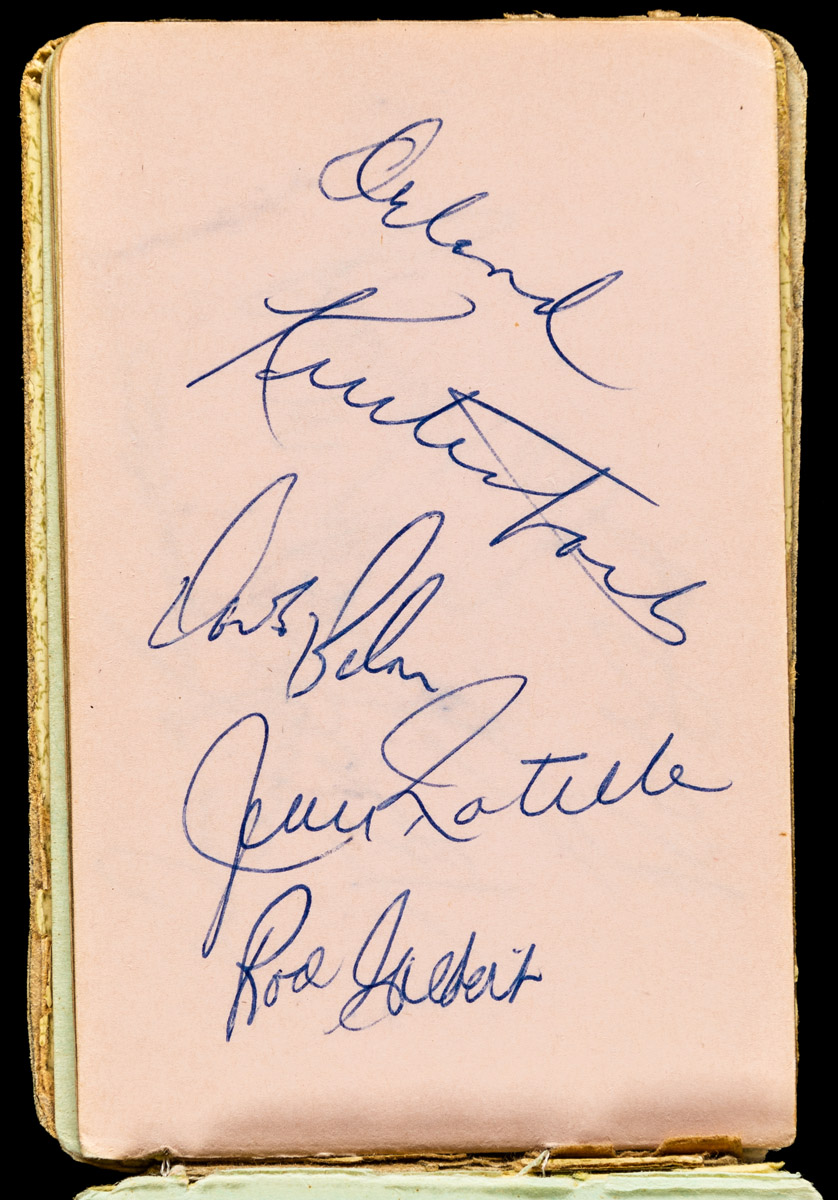 Orland
Kurtenbach
Dave Balon
Jean Ratelle
Rod Gilbert